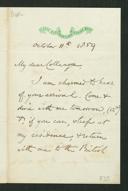 October 11th 1859
My dear Colleague,
I am charmed to hear
of your arrival. Come &
dine with me tomorrow (12th)
&, if you can, sleep at
my residence & return
with me to the British